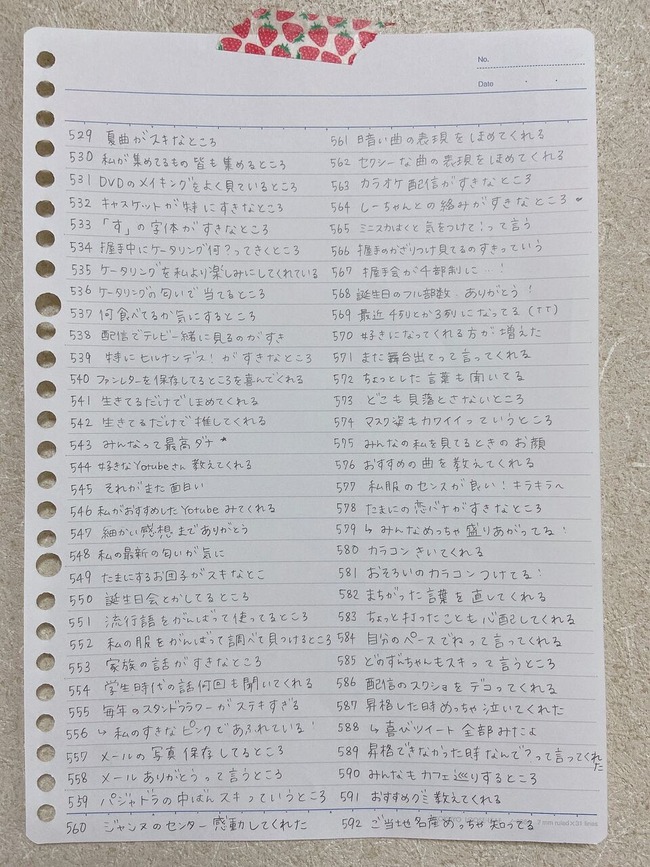 No.
Date
529 夏曲がスキなところ
530 私が集めてるもの皆も集めるところ
531 DVDのメイキングをよく見ているところ
532 キャスケットが特にすきなところ
533 「す」の字体がすきなところ
534 握手中にケータリング何?ってきくところ
535 ケータリングを私より楽しみにしてくれている
536 ケータリングの匂いで当てるところ
537 何食べてるか気にするところ
538 配信でテレビ一緒に見るのがすき
539 特にヒルナンデス!がすきなところ
540 ファンレターを保存してるところを喜んでくれる
541 生きてるだけでほめてくれる
542 生きてるだけで推してくれる
543 みんなって最高ダナ*
544 好きなYotubeさん教えてくれる
545 それがまた面白い
546 私がおすすめしたYotubeみてくれる
547 細かい感想までありがとう
548 私の最新の匂いが気に
549 たまにするお団子がスキなとこ
550 誕生日会とかしてるところ
551 流行語をがんばって使ってるところ
552 私の服をがんばって調べて見つけるところ
553 家族の話がすきなところ
554 学生時代の話何回も聞いてくれる
555 毎年のスタンドフラワーがステキすぎる
556 ↳私のすきなピンクであふれている!
557 メールの写真保存してるところ
558 メールありがとうって言うところ
559 パジャドラの中ばんスキっていうところ
560 ジャンヌのセンター感動してくれた
561 暗い曲の表現をほめてくれる
562 セクシーな曲の表現をほめてくれる
563 カラオケ配信がすきなところ
564 しーちゃんとの絡みがすきなところ
565 ミニスカはくと気をつけて!って言う
566 握手のかざりつけ見てるのすきっていう
567 握手会が4部制に…!
568 誕生日のフル部数、ありがとう!
569 最近4列とか3列になってる(TT)
570 好きになってくれる方が増えた
571 また舞台出てって言ってくれる
572 ちょっとした言葉も聞いてる
573 どこも見落とさないところ
574 マスク姿もカワイイっていうところ
575 みんなの私を見てるときのお顔
576 おすすめの曲を教えてくれる
577 私服のセンスが良い!キラキラへ
578 たまにの恋バナがすきなところ
579 ↳みんなめっちゃ盛りあがってる!
580 カラコンきいてくれる
581 おそろいのカラコンつけてる!
582 まちがった言葉を直してくれる
583 ちょっと打ったことも心配してくれる
584 自分のペースでねって言ってくれる
585 どのずんちゃんもスキって言うところ
586 配信のスクショをデコってくれる
587 昇格した時めっちゃ泣いてくれた
588 ↳喜びツイート全部みたよ
589 昇格できなかった時なんで?って言ってくれた
590 みんなもカフェ巡りするところ
591 おすすめグミ教えてくれる
592 ご当地名産めっちゃ知ってる